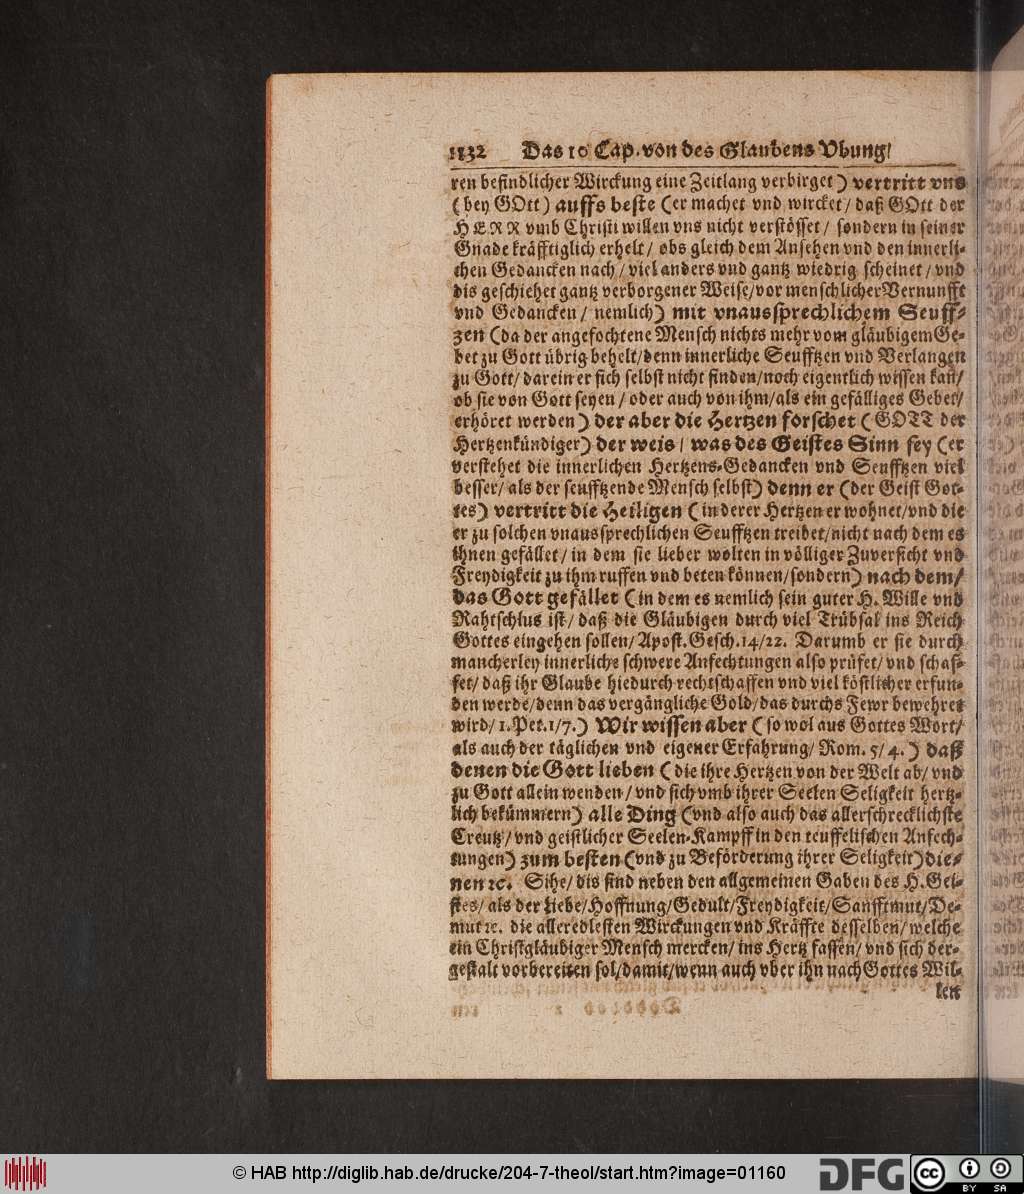 1132 Das 10 Cap. von des Glaubens Vbung/
ren befindlicher Wirckung eine Zeitlang verbirget) vertritt vns
(bey GOtt) auffs beste (er machet vnd wircket/ daß GOtt der
HERR vmb Christi willen vns nicht verstösset/ sondern in seiner
Gnade kräfftiglich erhelt/ obs gleich dem Ansehen vnd den innerli-
chen Gedancken nach/ viel anders vnd gantz wiedrig scheinet/ vnd
dis geschiehet gantz verborgener Weise/ vor menschlicher Vernunfft
vnd Gedancken/ nemlich) mit vnaussprechlichem Seuff-
zen (da der angefochtene Mensch nichts mehr vom gläubigem Ge-
bet zu Gott übrig behelt/ denn innerliche Seufftzen vnd Verlangen
zu Gott/ darein er sich selbst nicht finden/ noch eigentlich wissen kañ/
ob sie von Gott seyen/ oder auch von ihm/ als ein gefälliges Gebet/
erhöret werden) der aber die Hertzen forschet (GOTT der
Hertzenkündiger) der weis/ was des Geistes Sinn sey (er
verstehet die innerlichen Hertzens-Gedancken vnd Seufftzen viel
besser/ als der seufftzende Mensch selbst) denn er (der Geist Got-
tes) vertritt die Heiligen (in derer Hertzen er wohnet/ vnd die
er zu solchen vnaussprechlichen Seufftzen treibet/ nicht nach dem es
ihnen gefället/ in dem sie lieber wolten in völliger Zuversicht vnd
Freydigkeit zu ihm ruffen vnd beten können/ sondern) nach dem/
das Gott gefället (in dem es nemlich sein guter H. Wille vnd
Rahtschlus ist/ daß die Gläubigen durch viel Trübsal ins Reich
Gottes eingehen sollen/ Apost. Gesch. 14/22. Darumb er sie durch
mancherley innerliche schwere Anfechtungen also prüfet/ vnd schaf-
fet/ daß ihr Glaube hiedurch rechtschaffen vnd viel köstlicher erfun-
den werde/ denn das vergängliche Gold/ das durchs Fewr bewehret
wird/ 1. Pet. 1/7.) Wir wissen aber (so wol aus Gottes Wort/
als auch der täglichen vnd eigener Erfahrung/ Rom. 5/4.) daß
denen die Gott lieben (die ihre Hertzen von der Welt ab/ vnd
zu Gott allein wenden/ vnd sich vmb ihrer Seelen Seligkeit hertz-
lich bekümmern) alle Ding (vnd also auch das allerschrecklichste
Creutz/ vnd geistlicher Seelen-Kampff in den teuffelischen Anfech-
tungen) zum besten (vnd zu Beförderung ihrer Seligkeit) die-
nen ꝛc. Sihe/ dis sind neben den allgemeinen Gaben des H. Gei-
stes/ als der Liebe/ Hoffnung/ Gedult/ Freydigkeit/ Sanfftmut/ De-
mut ꝛc. die alleredlesten Wirckungen vnd Kräffte desselben/ welche
ein Christgläubiger Mensch mercken/ ins Hertz fassen/ vnd sich der-
gestalt vorbereiten sol/ damit/ wenn auch vber ihn nach Gottes Wil-
len
© HAB http://diglib.hab.de/drucke/204-7-theol/start.htm?image=01160
DFG
cc BY SA